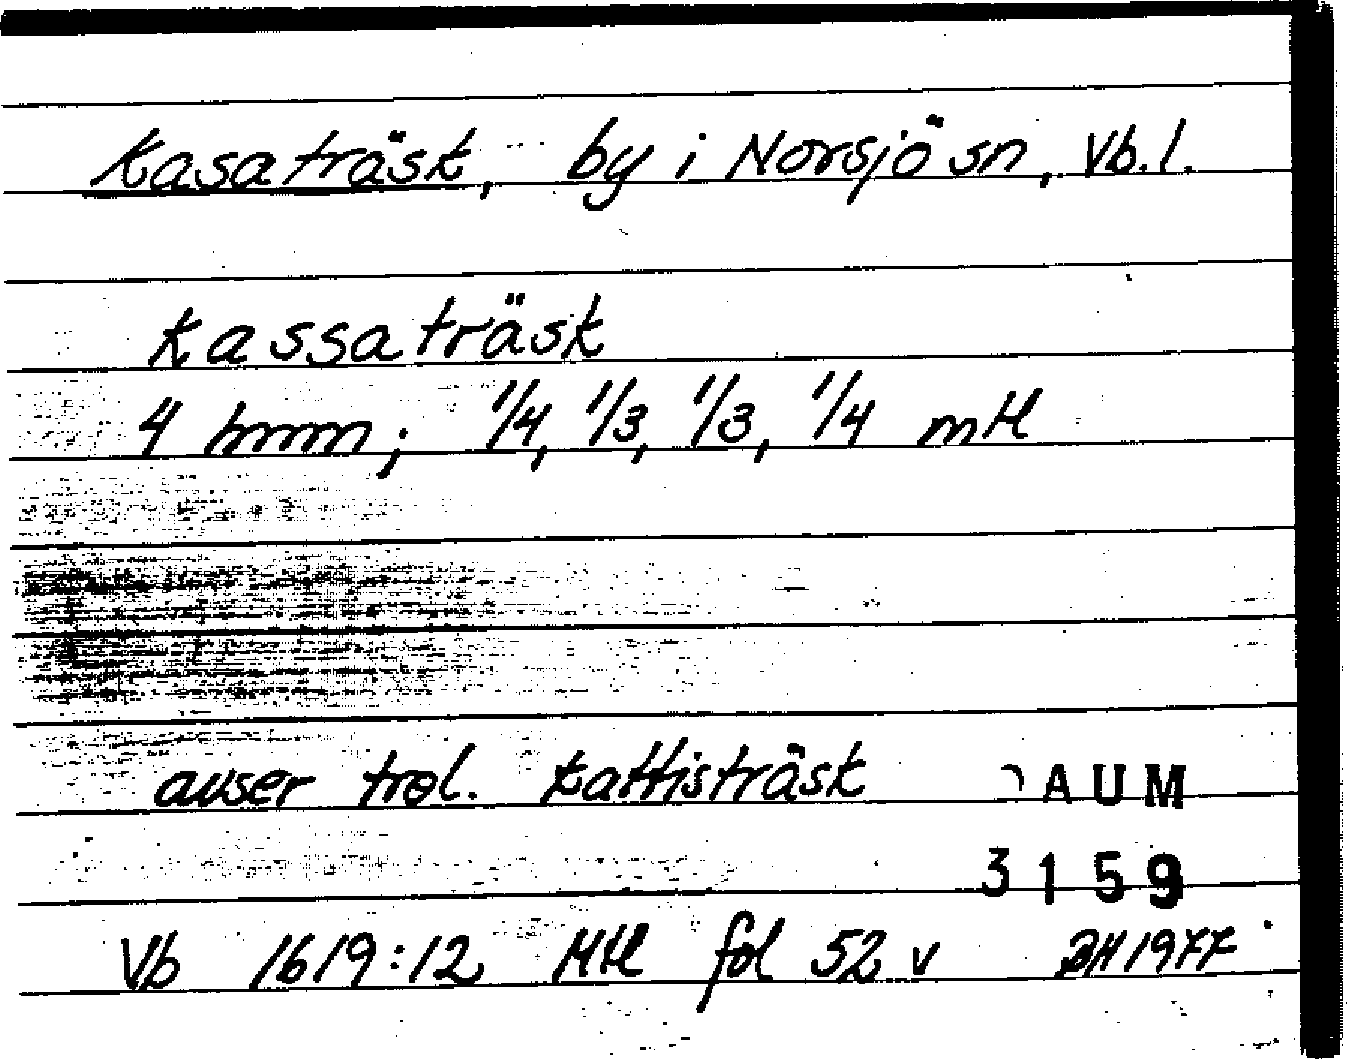 Kasaträsk, by i Norsjö sn, Vb.l.
Kassaträsk
4 hmm; 1/4, 1/3, 1/3, 1/4 mtl
avser trol. Kattisträsk DAUM
3159
Vb 1619:12 Mtl fol 52 v 1977